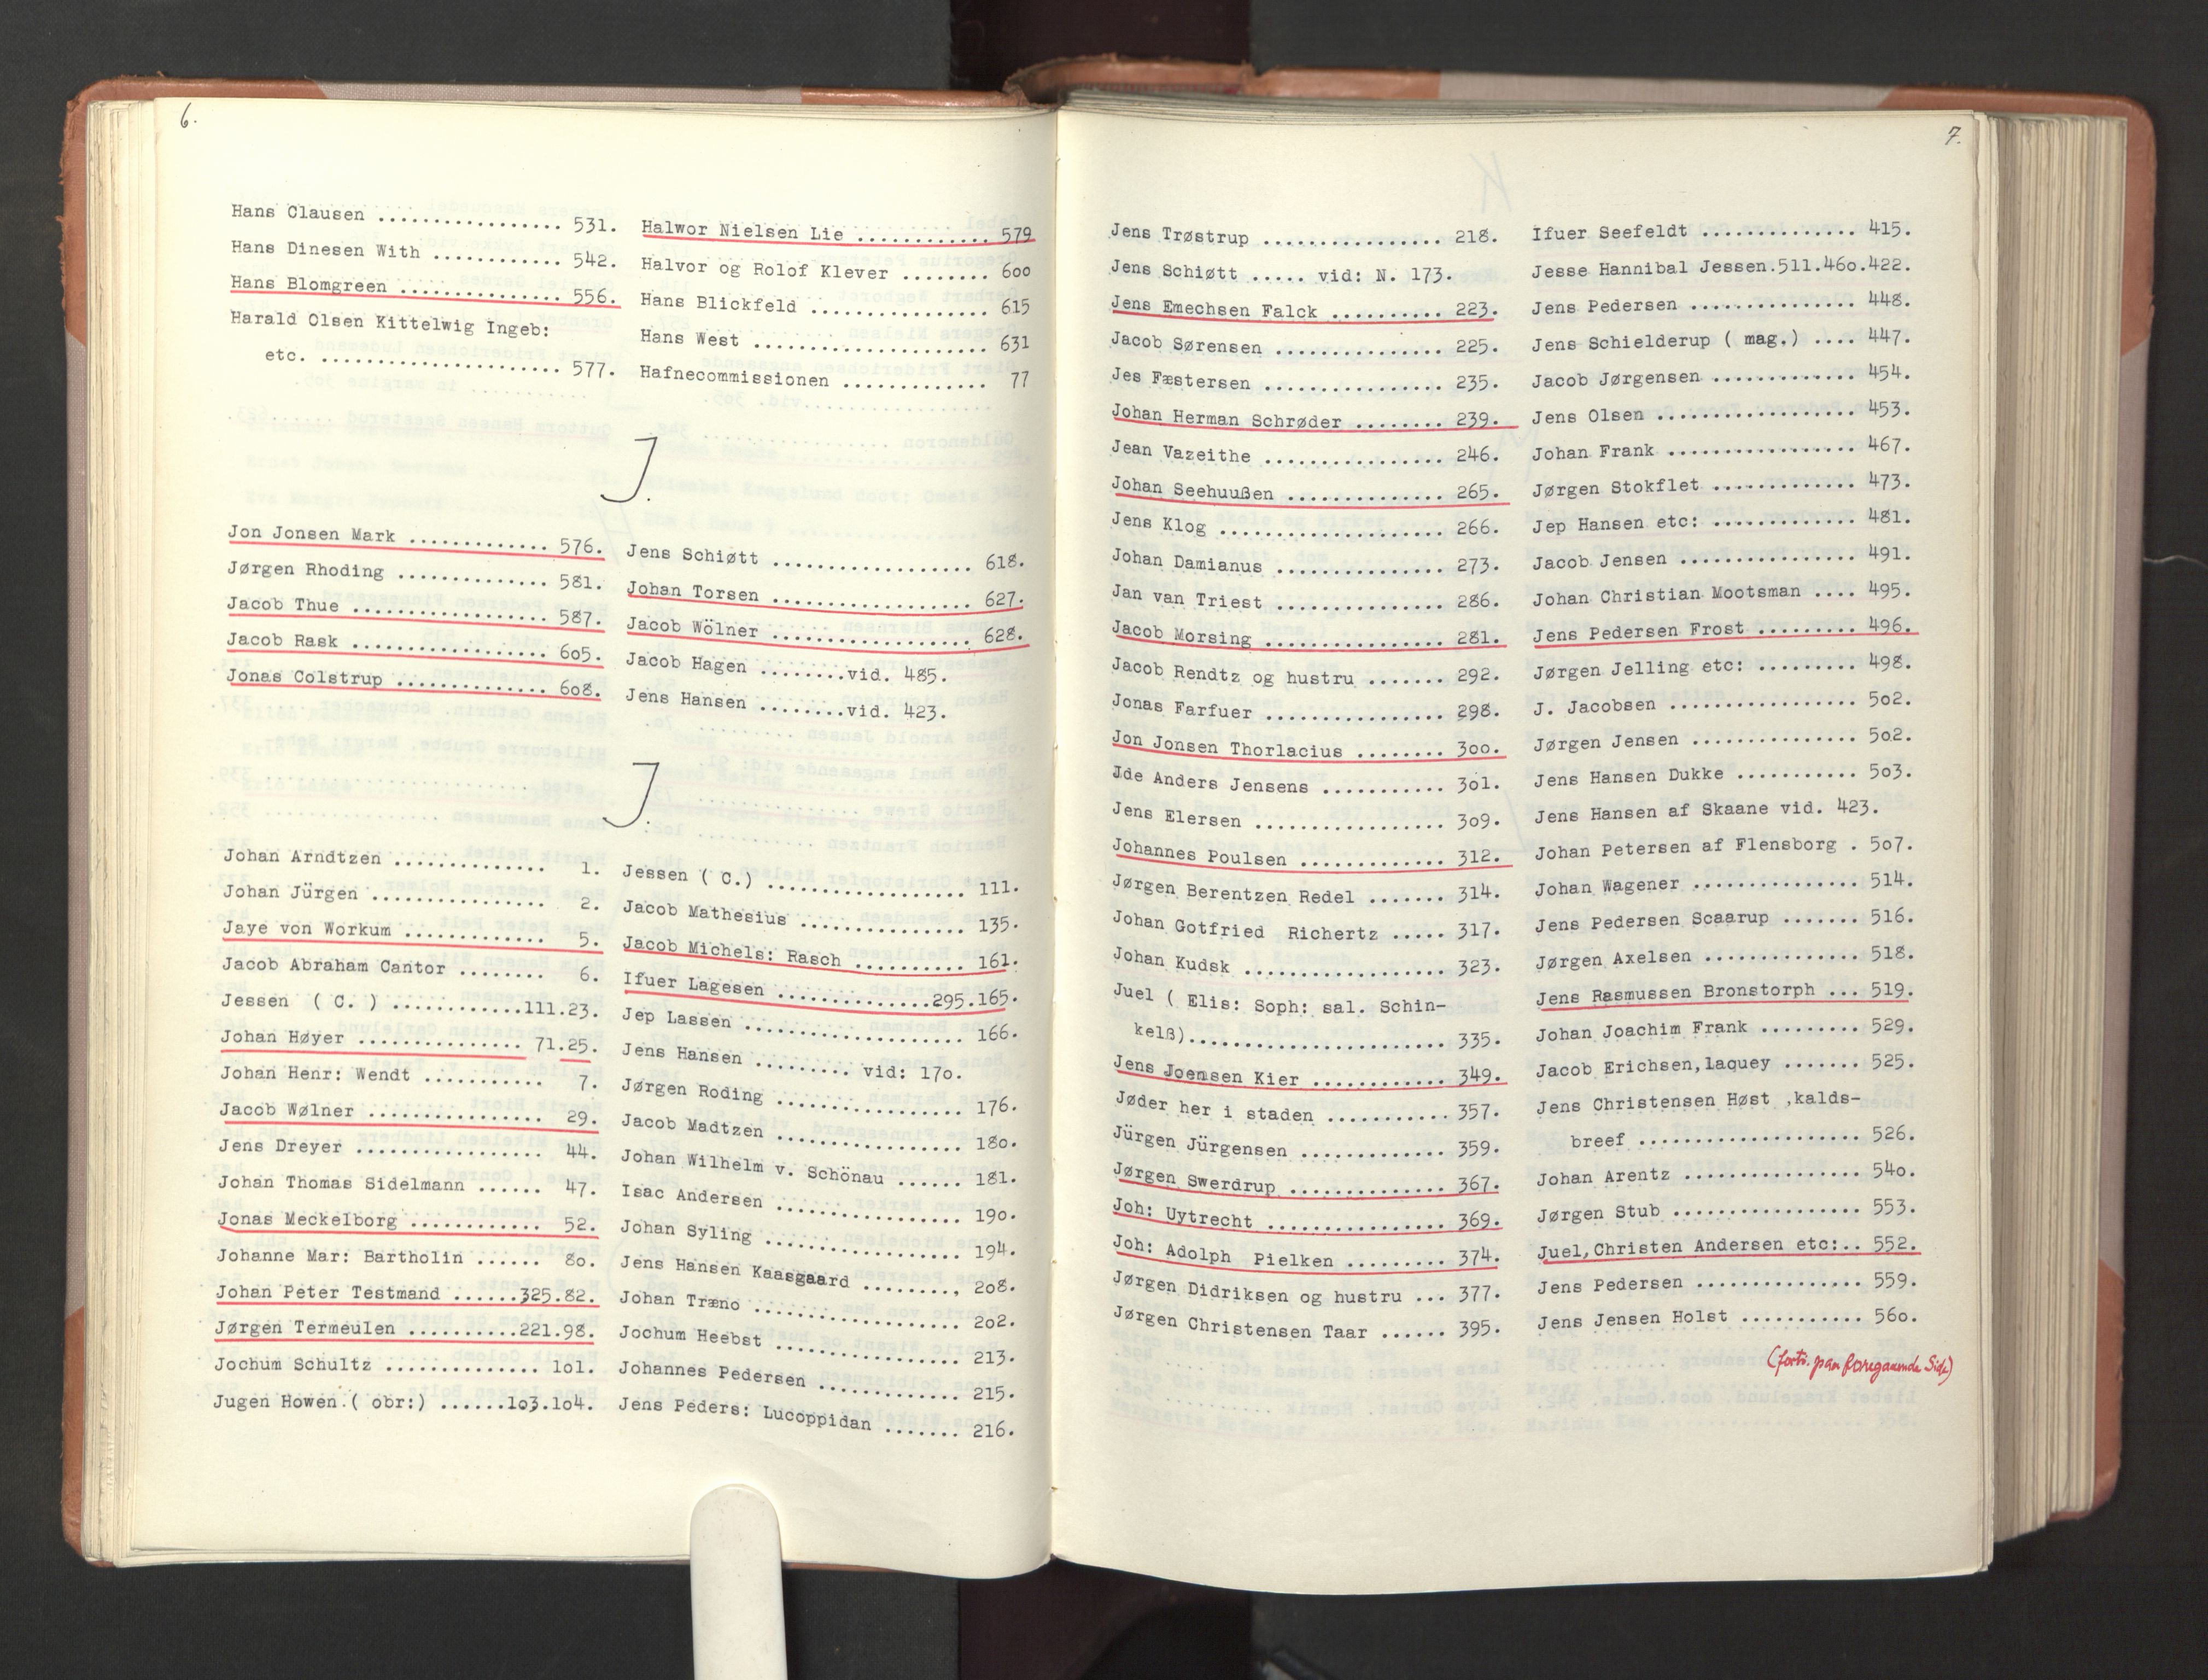 6.
Hans Clausen ................. 531.
Hans Dinesen With ............ 542.
Hans Blomgreen ............... 556.
Harald Olsen Kittelwig Ingeb:
etc. ...................... 577.
Halwor Nielsen Lie ............ 579
Halvor og Rolof Klever ........ 6oo
Hans Blickfeld ................ 615
Hans West ..................... 631
Hafnecommissionen ............. 77
J.
Jon Jonsen Mark ............. 576.
Jørgen Rhoding .............. 581.
Jacob Thue .................. 587.
Jacob Rask .................. 6o5.
Jonas Colstrup .............. 6o8.
Jens Schiøtt .................. 618.
Johan Torsen .................. 627.
Jacob Wölner .................. 628.
Jacob Hagen ........vid. 485.
Jens Hansen ........vid. 423.
J.
Johan Arndtzen .............. 1.
Johan Jürgen ................ 2.
Jaye von Workum ............. 5.
Jacob Abraham Cantor ........ 6.
Jessen ( C. ) ............111.23.
Johan Høyer ............... 71.25.
Johan Henr: Wendt ........... 7.
Jacob Wølner ................ 29.
Jens Dreyer ................. 44.
Johan Thomas Sidelmann ...... 47.
Jonas Meckelborg ............ 52.
Johanne Mar: Bartholin ...... 8o.
Johan Peter Testmand ......325.82.
Jørgen Termeulen ..........221.98.
Jochum Schultz .............. lol.
Jugen Howen ( obr:) ......lo3.lo4.
Jessen ( C.) .................. 111.
Jacob Mathesius ............... 135.
Jacob Michels: Rasch .......... 161.
Ifuer Lagesen ..............295.165.
Jep Lassen .................... 166.
Jens Hansen ......... vid: 17o.
Jørgen Roding ................. 176.
Jacob Madtzen ................. 18o.
Johan Wilhelm v. Schönau ...... 181.
Isac Andersen ................. 19o.
Johan Syling .................. 194.
Jens Hansen Kaasgaard ........, 2o8.
Johan Træno ................... 2o2.
Jochum Heebst ................. 213.
Johannes Pedersen ............. 215.
Jens Peders: Lucoppidan ....... 216.
7.
Jens Trøstrup ................ 218.
Jens Schiøtt ..... vid: N. 173.
Jens Emechsen Falck .......... 223.
Jacob Sørensen ............... 225.
Jes Fæstersen ................ 235.
Johan Herman Schrøder ........ 239.
Jean Vazeithe ................ 246.
Johan Seehuußen .............. 265.
Jens Klog .................... 266.
Johan Damianus ............... 273.
Jan van Triest ............... 286.
Jacob Morsing ................ 281.
Jacob Rendtz og hustru ....... 292.
Jonas Farfuer ................ 298.
Jon Jonsen Thorlacius ........ 3oo.
Jde Anders Jensens ........... 3ol.
Jens Elersen ................. 3o9.
Johannes Poulsen ............. 312.
Jørgen Berentzen Redel ....... 314.
Johan Gotfried Richertz ..... 317.
Johan Kudsk .................. 323.
Juel ( Elis: Soph: sal. Schin-
kelß)....................... 335.
Jens Joemsen Kier ............ 349.
Jøder her i staden ........... 357.
Jürgen Jürgensen ............. 359.
Jørgen Swerdrup .............. 367.
Joh: Uytrecht ................ 369.
Joh: Adolph Pielken ......... 374.
Jørgen Didriksen og hustru ... 377.
Jørgen Christensen Taar ...... 395.
Ifuer Seefeldt .............. 415.
Jesse Hannibal Jessen.511.46o.422.
Jens Pedersen ............... 448.
Jens Schielderup ( mag.) .... 447.
Jacob Jørgensen ............. 454.
Jens Olsen .................. 453.
Johan Frank ................. 467.
Jørgen Stokflet ............. 473.
Jep Hansen etc: ............. 481.
Jacob Jensen ................ 491.
Johan Christian Mootsman .... 495.
Jens Pedersen Frost ......... 496.
Jørgen Jelling etc: ......... 498.
J. Jacobsen ................. 5o2.
Jørgen Jensen ............... 5o2.
Jens Hansen Dukke ........... 5o3.
Jens Hansen af Skaane vid. 423.
Johan Petersen af Flensborg . 5o7.
Johan Wagener ............... 514.
Jens Pedersen Scaarup ....... 516.
Jørgen Axelsen .............. 518.
Jens Rasmussen Bronstorph ... 519.
Johan Joachim Frank ......... 529.
Jacob Erichsen,laquey ....... 525.
Jens Christensen Høst ,kalds-
breef .................... 526.
Johan Arentz ................ 54o.
Jørgen Stub ................. 553.
Juel,Christen Andersen etc:.. 552.
Jens Pedersen ............... 559.
Jens Jensen Holst ........... 56o.
(forts. paa foregaaende Side)